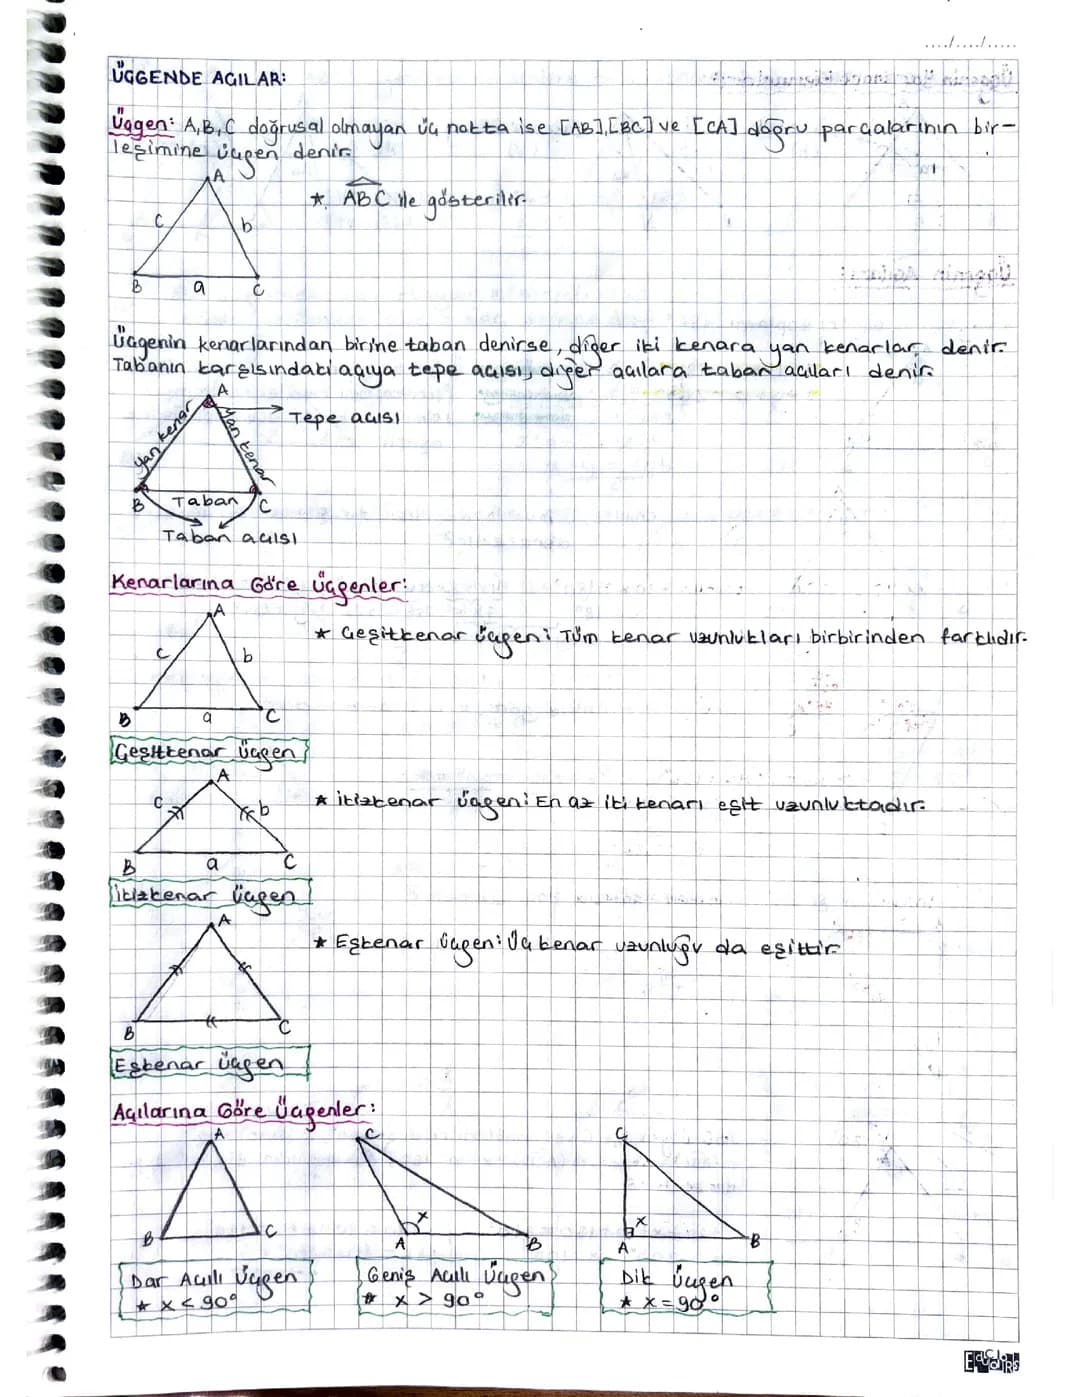 ..../..../.....
ÜÇGENDE AÇILAR:
Üçgen: A,B,C doğrusal olmayan üç nokta ise [AB],[BC] ve [CA] doğru parçalarının bir-
leşimine üçgen denir.
A
★ ABC ile gösterilir.
c
b
B
a
C
Üçgenin kenarlarından birine taban denirse, diğer iki kenara yan kenarlar denir.
Tabanın karşısındaki açıya tepe açısı, diğer açılara taban açıları denir.
A
Tepe açısı
Yan kenar
Yan kenar
B
Taban
C
Taban açısı
Kenarlarına Göre Üçgenler:
A
★ Çeşitkenar üçgen: Tüm kenar uzunlukları birbirinden farklıdır.
c
b
B
a
C
Çeşitkenar üçgen
A
★ ikizkenar üçgen: En az iki kenarı eşit uzunluktadır.
c
b
B
a
C
ikizkenar üçgen
A
★ Eşkenar üçgen: Üç kenar uzunluğu da eşittir.
B
C
Eşkenar üçgen
Açılarına Göre Üçgenler:
A
C
C
x
x
B
C
A
B
A
B
Dar Açılı Üçgen
★ x < 90°
Geniş Açılı Üçgen
★ x > 90°
Dik Üçgen
★ x = 90°